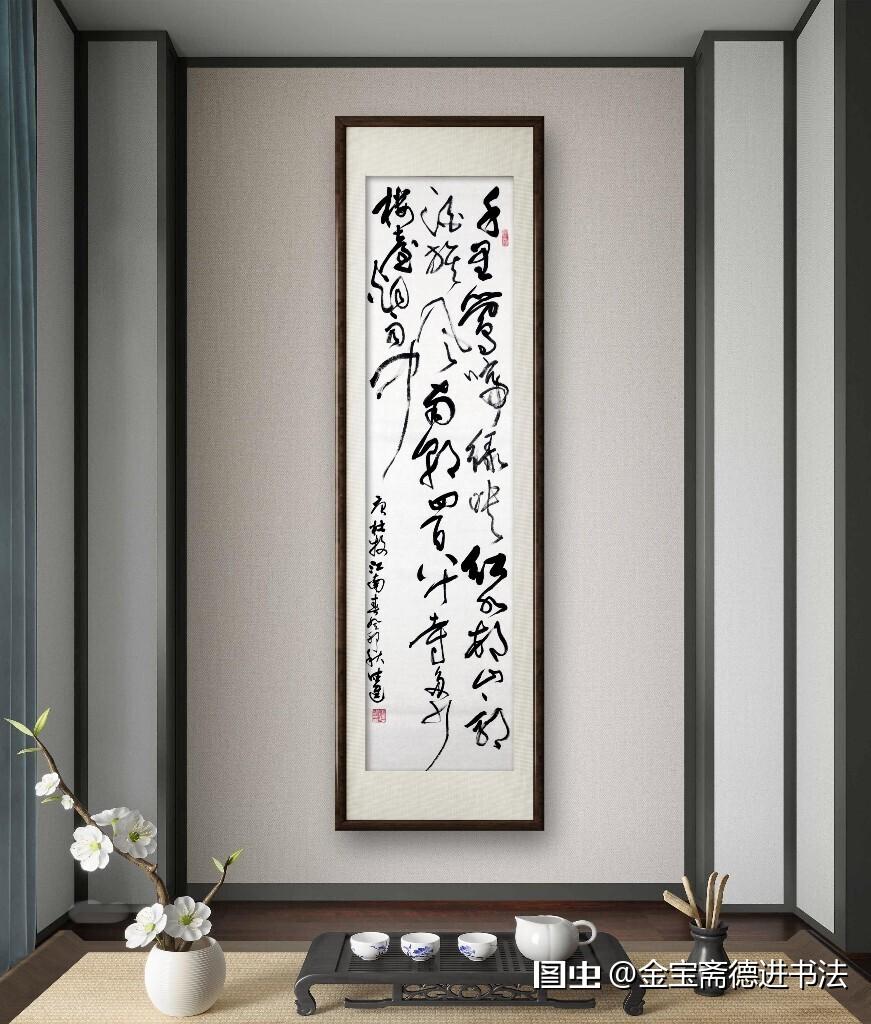 千里鶯啼绿映红水村山郭
酒旗风南朝四百八十寺多少
楼臺烟雨中
唐杜牧江南春癸卯秋
图虫@金宝斋德进书法